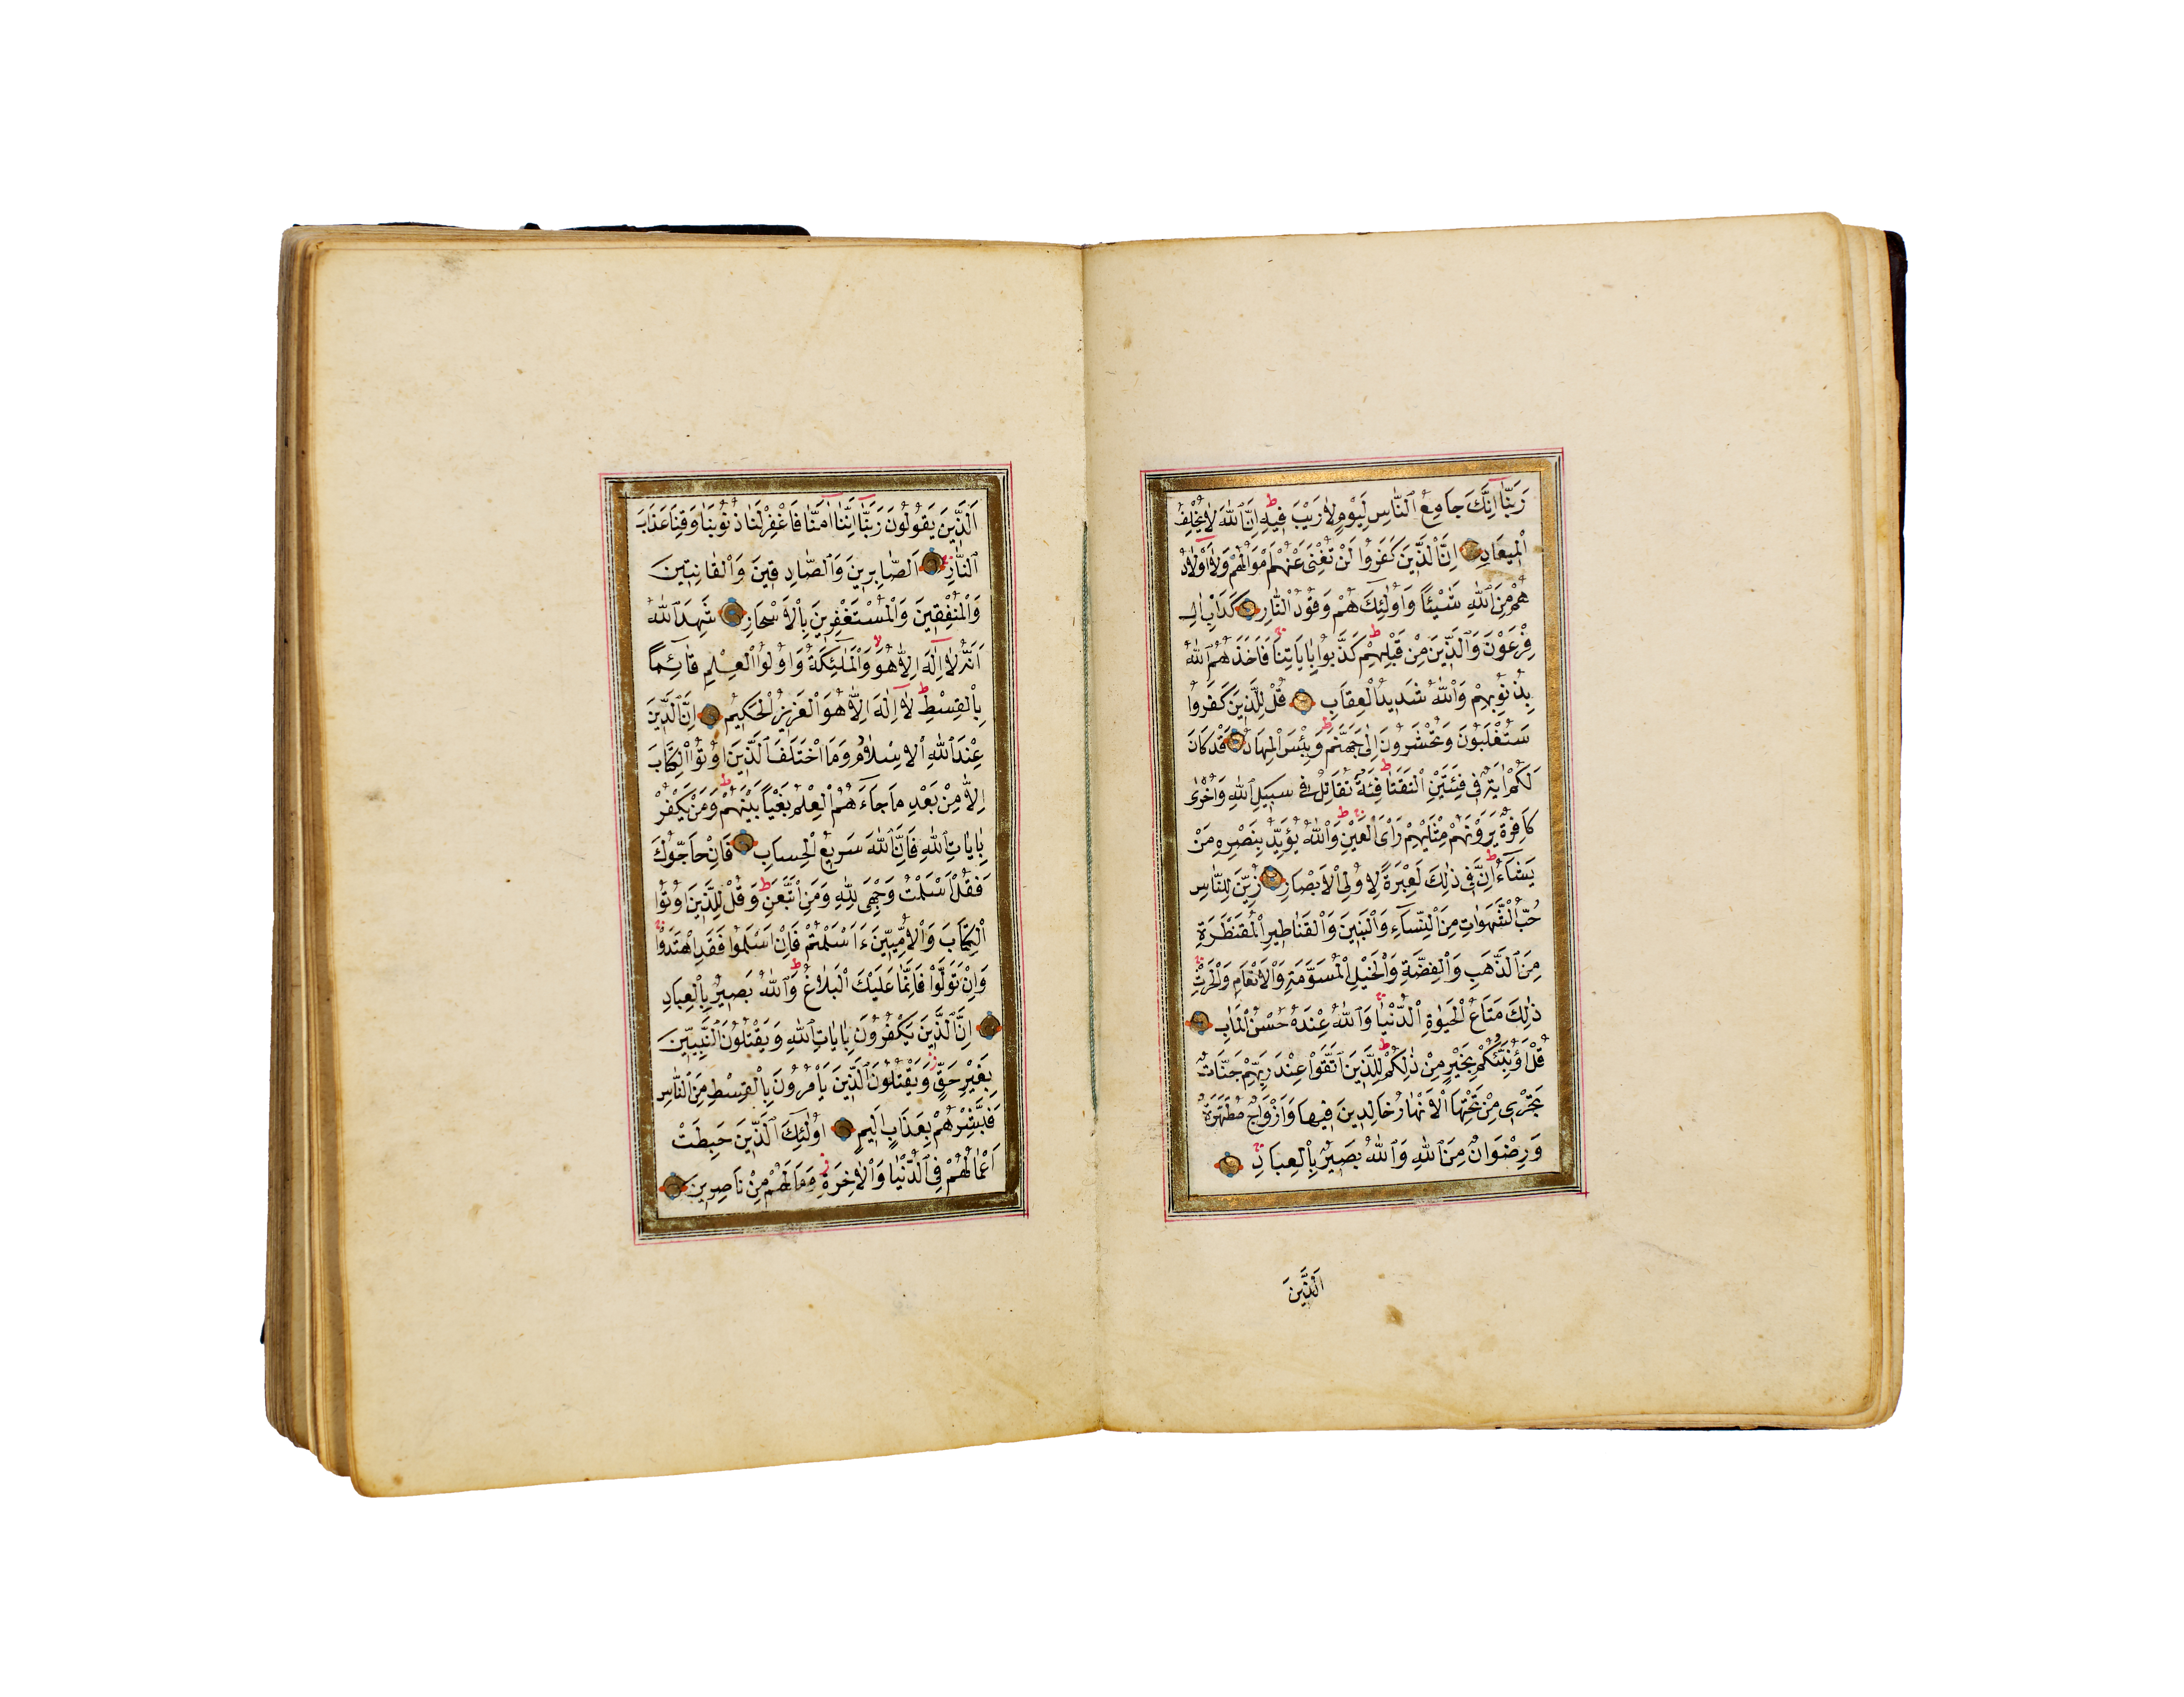 رَبَّنَا اِنَّكَ جَامِعُ النَّاسِ لِيَوْمٍ لَا رَيْبَ فِيهِ ط اِنَّ اللهَ لَا يُخْلِفُ
الْمِيعَادَ اِنَّ الَّذِينَ كَفَرُوا لَنْ تُغْنِيَ عَنْهُمْ اَمْوَالُهُمْ وَلَا اَوْلَادُ
هُمْ مِنَ اللهِ شَيْئًا وَاُولٰئِكَ هُمْ وَقُودُ النَّارِ كَدَاْبِ اٰلِ
فِرْعَوْنَ وَالَّذِينَ مِنْ قَبْلِهِمْ ط كَذَّبُوا بِاٰيَاتِنَا ج فَاَخَذَهُمُ اللهُ
بِذُنُوبِهِمْ وَاللهُ شَدِيدُ الْعِقَابِ قُلْ لِلَّذِينَ كَفَرُوا
سَتُغْلَبُونَ وَتُحْشَرُونَ اِلٰى جَهَنَّمَ ط وَبِئْسَ الْمِهَادُ قَدْ كَانَ
لَكُمْ اٰيَةٌ فِي فِئَتَيْنِ الْتَقَتَا ط فِئَةٌ تُقَاتِلُ فِي سَبِيلِ اللهِ وَاُخْرٰى
كَافِرَةٌ يَرَوْنَهُمْ مِثْلَيْهِمْ رَاْيَ الْعَيْنِ ط وَاللهُ يُؤَيِّدُ بِنَصْرِهِ مَنْ
يَشَاءُ ط اِنَّ فِي ذٰلِكَ لَعِبْرَةً لِاُولِي الْاَبْصَارِ زُيِّنَ لِلنَّاسِ
حُبُّ الشَّهَوَاتِ مِنَ النِّسَاءِ وَالْبَنِينَ وَالْقَنَاطِيرِ الْمُقَنْطَرَةِ
مِنَ الذَّهَبِ وَالْفِضَّةِ وَالْخَيْلِ الْمُسَوَّمَةِ وَالْاَنْعَامِ وَالْحَرْثِ
ذٰلِكَ مَتَاعُ الْحَيٰوةِ الدُّنْيَا ج وَاللهُ عِنْدَهُ حُسْنُ الْمَاٰبِ
قُلْ اَؤُنَبِّئُكُمْ بِخَيْرٍ مِنْ ذٰلِكُمْ ط لِلَّذِينَ اتَّقَوْا عِنْدَ رَبِّهِمْ جَنَّاتٌ
تَجْرِي مِنْ تَحْتِهَا الْاَنْهَارُ خَالِدِينَ فِيهَا وَاَزْوَاجٌ مُطَهَّرَةٌ
وَرِضْوَانٌ مِنَ اللهِ وَاللهُ بَصِيرٌ بِالْعِبَادِ
اَلَّذِينَ
اَلَّذِينَ يَقُولُونَ رَبَّنَا اِنَّنَا اٰمَنَّا فَاغْفِرْ لَنَا ذُنُوبَنَا وَقِنَا عَذَابَ
النَّارِ اَلصَّابِرِينَ وَالصَّادِقِينَ وَالْقَانِتِينَ
وَالْمُنْفِقِينَ وَالْمُسْتَغْفِرِينَ بِالْاَسْحَارِ شَهِدَ اللهُ
اَنَّهُ لَا اِلٰهَ اِلَّا هُوَ لا وَالْمَلٰئِكَةُ وَاُولُوا الْعِلْمِ قَائِمًا
بِالْقِسْطِ ط لَا اِلٰهَ اِلَّا هُوَ الْعَزِيزُ الْحَكِيمُ اِنَّ الدِّينَ
عِنْدَ اللهِ الْاِسْلَامُ وَمَا اخْتَلَفَ الَّذِينَ اُوتُوا الْكِتَابَ
اِلَّا مِنْ بَعْدِ مَا جَاءَهُمُ الْعِلْمُ بَغْيًا بَيْنَهُمْ ط وَمَنْ يَكْفُرْ
بِاٰيَاتِ اللهِ فَاِنَّ اللهَ سَرِيعُ الْحِسَابِ فَاِنْ حَاجُّوكَ
فَقُلْ اَسْلَمْتُ وَجْهِيَ لِلّٰهِ وَمَنِ اتَّبَعَنِ ط وَقُلْ لِلَّذِينَ اُوتُوا
الْكِتَابَ وَالْاُمِّيِّينَ ءَاَسْلَمْتُمْ فَاِنْ اَسْلَمُوا فَقَدِ اهْتَدَوْا
وَاِنْ تَوَلَّوْا فَاِنَّمَا عَلَيْكَ الْبَلَاغُ ط وَاللهُ بَصِيرٌ بِالْعِبَادِ
اِنَّ الَّذِينَ يَكْفُرُونَ بِاٰيَاتِ اللهِ وَيَقْتُلُونَ النَّبِيِّينَ
بِغَيْرِ حَقٍّ ز وَيَقْتُلُونَ الَّذِينَ يَاْمُرُونَ بِالْقِسْطِ مِنَ النَّاسِ
فَبَشِّرْهُمْ بِعَذَابٍ اَلِيمٍ اُولٰئِكَ الَّذِينَ حَبِطَتْ
اَعْمَالُهُمْ فِي الدُّنْيَا وَالْاٰخِرَةِ ز وَمَا لَهُمْ مِنْ نَاصِرِينَ